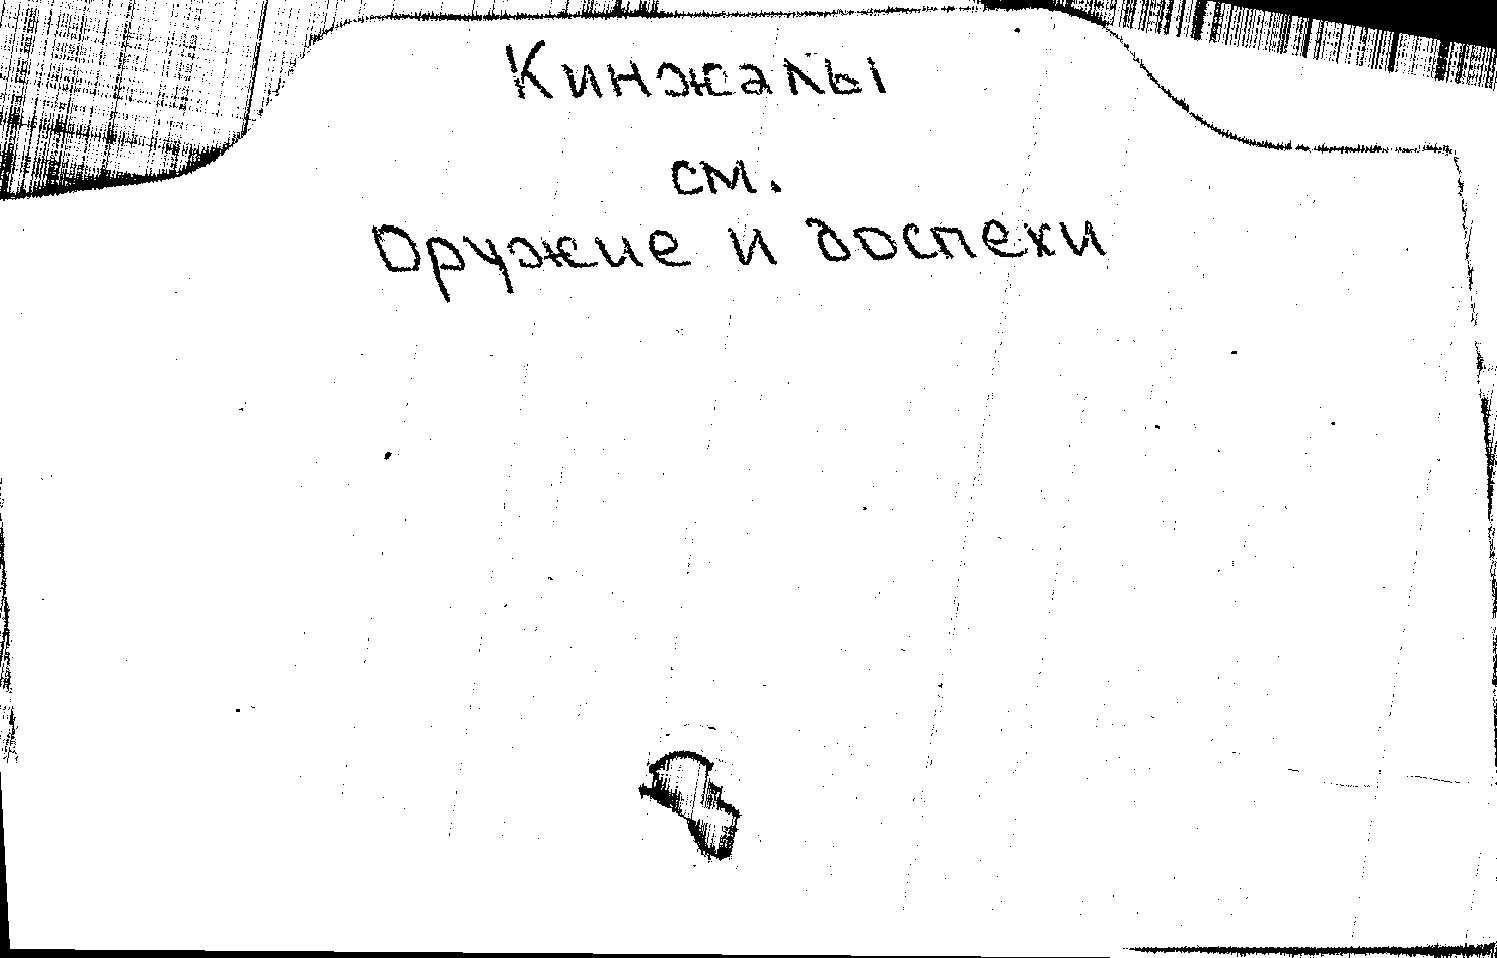 Кинжалы
см.
Оружие и доспехи